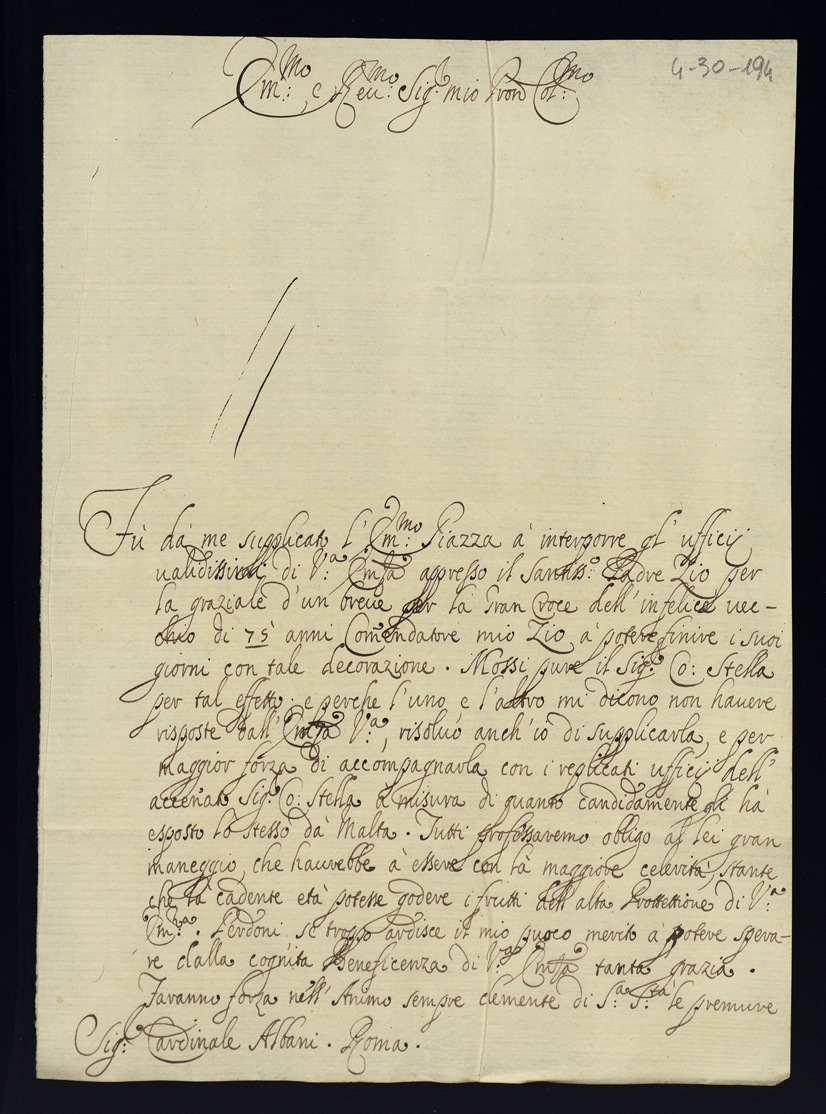 4-30-194
Em:mo, e Reu:mo Sig.r mio Pron Col:mo
Fù dà me supplicato l' Em:mo Piazza à interporre gl' ufficij
ualidissimi di V:a Emza appresso il Santiss:o Padre Zio per
la graziale d'un breue per la Gran Croce dell' infelice uec-
chio di 75 anni Comendatore mio Zio à potere finire i suoi
giorni con tale decorazione. Mossi pure il Sig.r Co: Stella
per tal effetto; e perche l'uno, e l'altro mi dicono non hauere
risposte dall' Emza V:a, risoluo anch'io di supplicarla, e per
maggior forza di accompagnarla con i replicati ufficij dell'
accenato Sig.r Co: Stella à misura di quanto candidamente gli hà
esposto lo stesso dà Malta. Tutti professaremo obligo al lei gran
maneggio, che haurebbe à essere con la maggiore celerità, stante
che la cadente età potesse godere i frutti dell' alta Prottettione di V:a
Em:za. Perdoni se troppo ardisce il mio puoco merito à potere spera-
re dalla cognita Beneficenza di V:a Emza tanta grazia.
Faranno forza nell' Animo sempre clemente di S:a S:tà le premure
Sig.r Cardinale Albani. Roma.